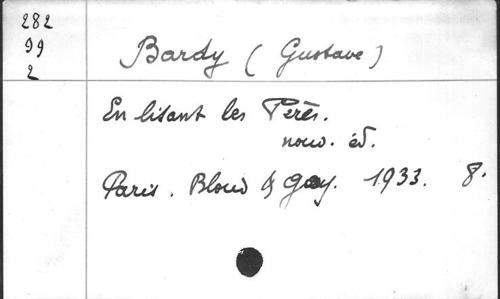 282
99
2
Bardy (Gustave)
En lisant les Pères.
nouv. éd.
Paris. Bloud & Gay. 1933. 8.